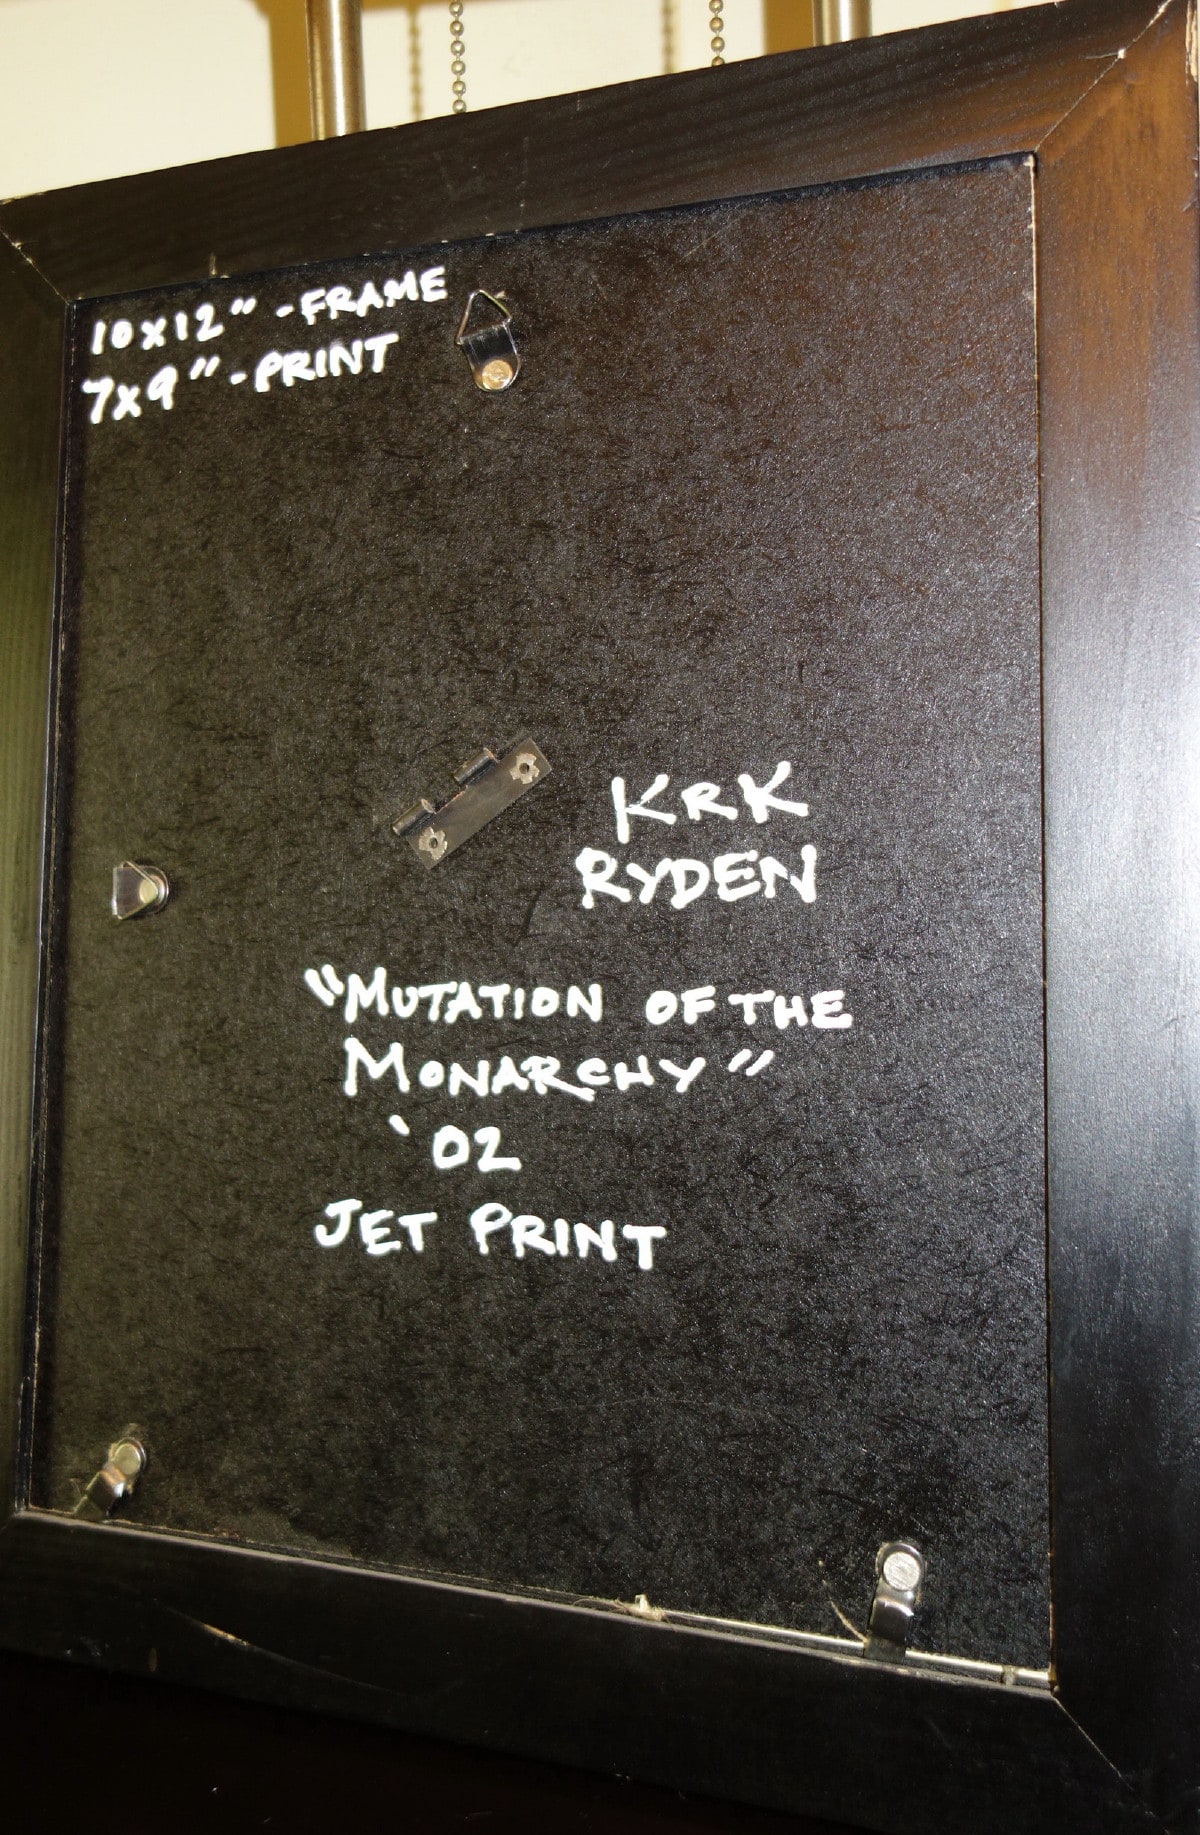 10x12" - FRAME
7x9" - PRINT
KRK
RYDEN
"MUTATION OF THE
MONARCHY"
'02
JET PRINT